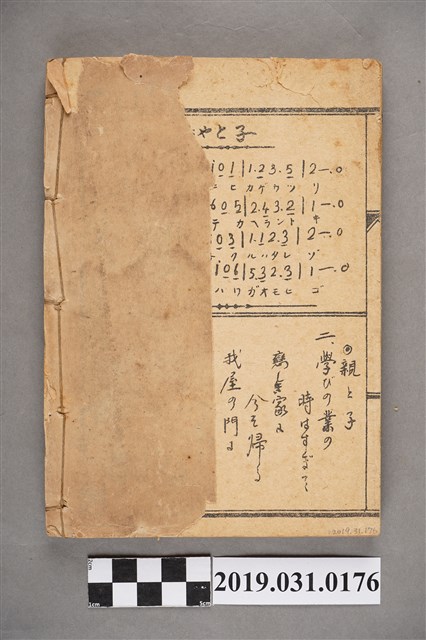 おやと子
i 0 1 | 1.2 3.5 | 2 — . 0
ニ ヒ カ ゲ ウ ツ リ
6 0 5 | 2.4 3.2 | 1 — . 0
テ カ ヘ ラ ン ト キ
0 3 | 1.1 2.3 | 2 — . 0
ト ク ル ハ タ レ ゾ
i 0 6 | 5.3 2.3 | 1 — . 0
ハ ワ ガ オ モ ヒ ゴ
◎親と子
二、學びの業の
時はすぎて
我家に
今ぞ帰る
我屋の門に
2019.31.176
2cm
1cm
5cm
2019.031.0176